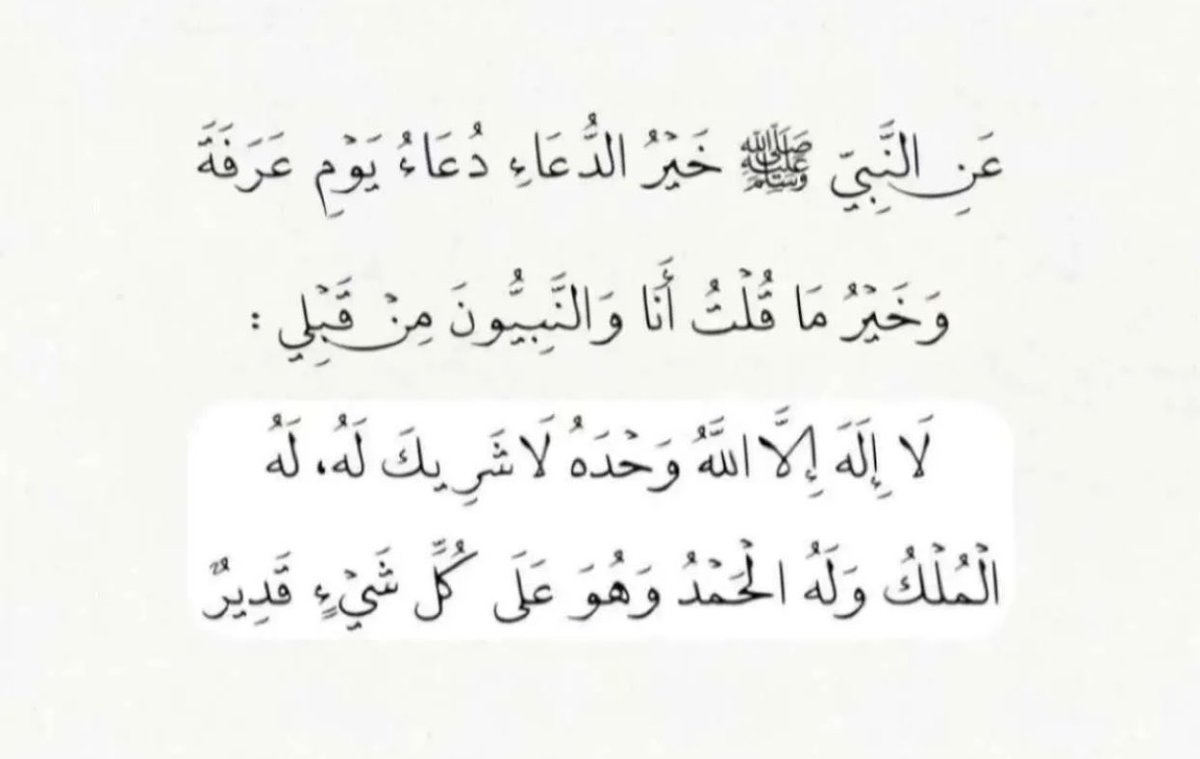 عَنِ النَّبِيِّ ﷺ خَيْرُ الدُّعَاءِ دُعَاءُ يَوْمِ عَرَفَةَ
وَخَيْرُ مَا قُلْتُ أَنَا وَالنَّبِيُّونَ مِنْ قَبْلِي :
لَا إِلَهَ إِلَّا اللَّهُ وَحْدَهُ لَا شَرِيكَ لَهُ، لَهُ
الْمُلْكُ وَلَهُ الْحَمْدُ وَهُوَ عَلَى كُلِّ شَيْءٍ قَدِيرٌ